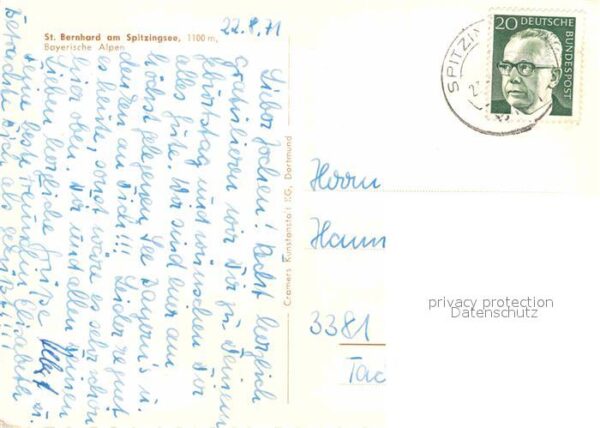 St. Bernhard am Spitzingsee, 1100 m,
Bayerische Alpen
22.8.71
Lieber Jochen! Recht herzlich
gratulieren wir Dir zu Deinem
Geburtstag und wünschen Dir
alles Gute. Wir sind hier am
höchst gelegenen See Bayerns u.
denken an Dich!!! Leider regnet
es heute, sonst wäre es sehr schön
hier oben. Dir und allen Deinen
Lieben herzliche Grüße
Deine beste Freundin Elisabeth u.
Betrachte Dich als
Cramers Kunstanstalt KG, Dortmund
SPITZIN
20 DEUTSCHE
BUNDESPOST
Herrn
Hann
3381
privacy protection
Datenschutz